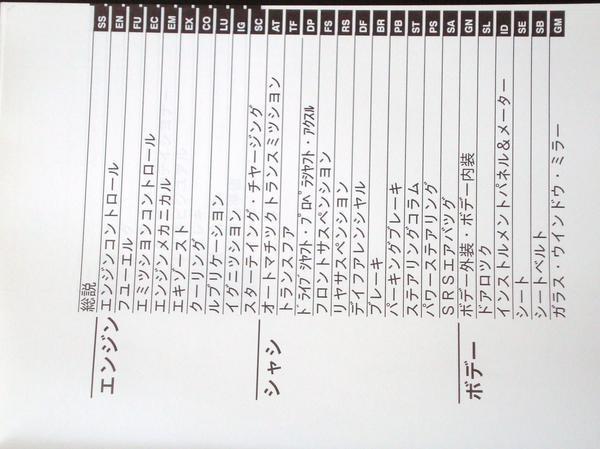 総説 SS
エンジン エンジンコントロール EN
フューエル FU
エミッションコントロール EC
エンジンメカニカル EM
エキゾースト EX
クーリング CO
ルブリケーション LU
イグニッション IG
スターティング・チャージング SC
シャシ オートマチックトランスミッション AT
トランスファ TF
ドライブシャフト・プロペラシャフト・アクスル DP
フロントサスペンション FS
リヤサスペンション RS
ディファレンシャル DF
ブレーキ BR
パーキングブレーキ PB
ステアリングコラム ST
パワーステアリング PS
SRSエアバッグ SA
ボデー ボデー外装・ボデー内装 GN
ドアロック SL
インストルメントパネル&メーター ID
シート SE
シートベルト SB
ガラス・ウインドウ・ミラー GM